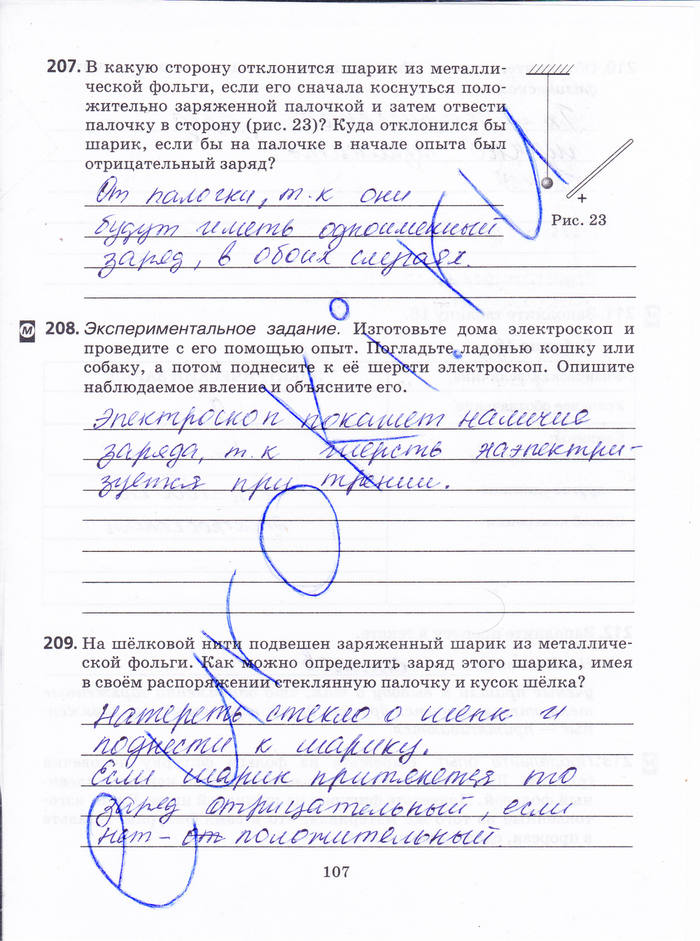 207. В какую сторону отклонится шарик из металли-
ческой фольги, если его сначала коснуться поло-
жительно заряженной палочкой и затем отвести
палочку в сторону (рис. 23)? Куда отклонился бы
шарик, если бы на палочке в начале опыта был
отрицательный заряд?
+
Рис. 23
От палочки, т.к они
будут иметь одноименный
заряд, в обоих случаях.
М 208. Экспериментальное задание. Изготовьте дома электроскоп и
проведите с его помощью опыт. Погладьте ладонью кошку или
собаку, а потом поднесите к её шерсти электроскоп. Опишите
наблюдаемое явление и объясните его.
Электроскоп покажет наличие
заряда, т.к шерсть наэлектри-
зуется при трении.
209. На шёлковой нити подвешен заряженный шарик из металличе-
ской фольги. Как можно определить заряд этого шарика, имея
в своём распоряжении стеклянную палочку и кусок шёлка?
Натереть стекло о шелк и
поднести к шарику.
Если шарик притянется то
заряд отрицательный, если
нет - от положительный
107